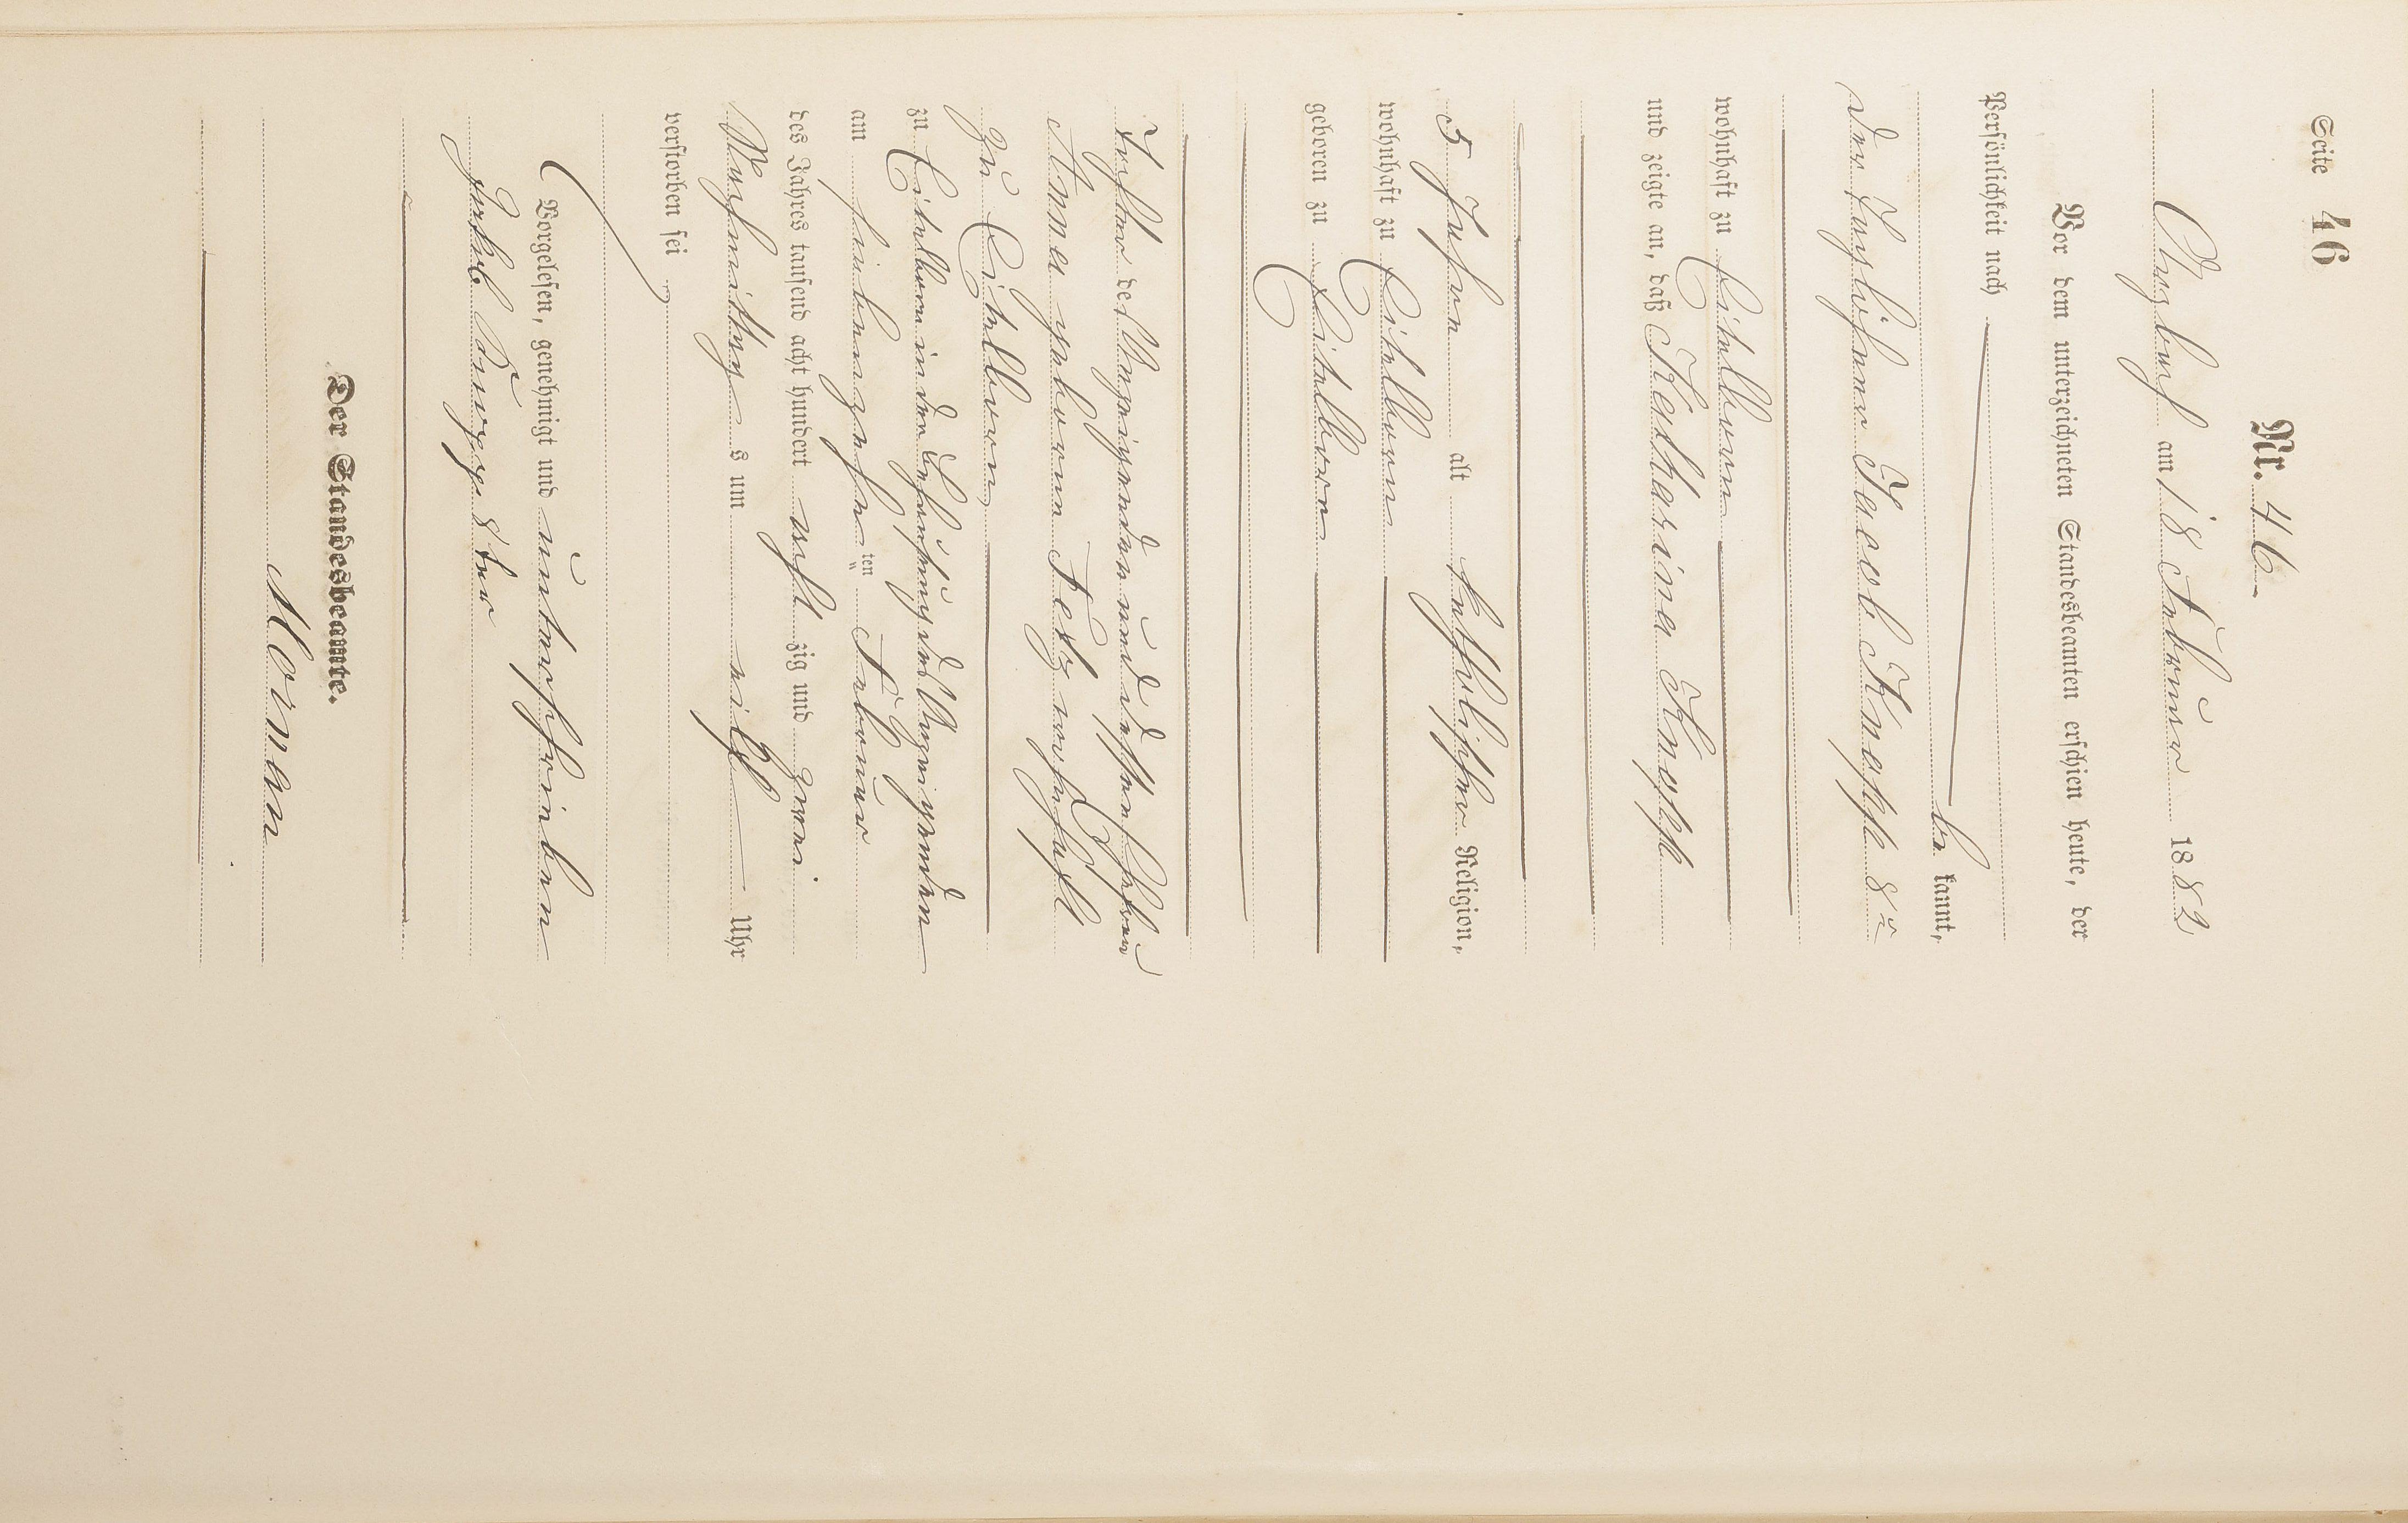 Seite 46
Nr. 46
Arzbach am 18 Februar 1882
Vor dem unterzeichneten Standesbeamten erschien heute, der
Persönlichkeit nach
be kannt,
der Taglöhner Jacob Knopp 8ter
wohnhaft zu Eitelborn
und zeigte an, daß Katharina Knopp
5 Jahre alt katholischer Religion,
wohnhaft zu Eitelborn
geboren zu Eitelborn
Tochter des Anzeigenden und dessen Ehefrau
Anna geborne Fetz wohnhaft
zu Eitelborn
zu Eitelborn in der Behausung des Anzeigenden
am siebenzehn ten Februar
des Jahres tausend acht hundert acht zig und zwei
Nachmittag s um eilf Uhr
verstorben sei
Vorgelesen, genehmigt und unterschrieben
Jakob 8ter
Der Standesbeamte.